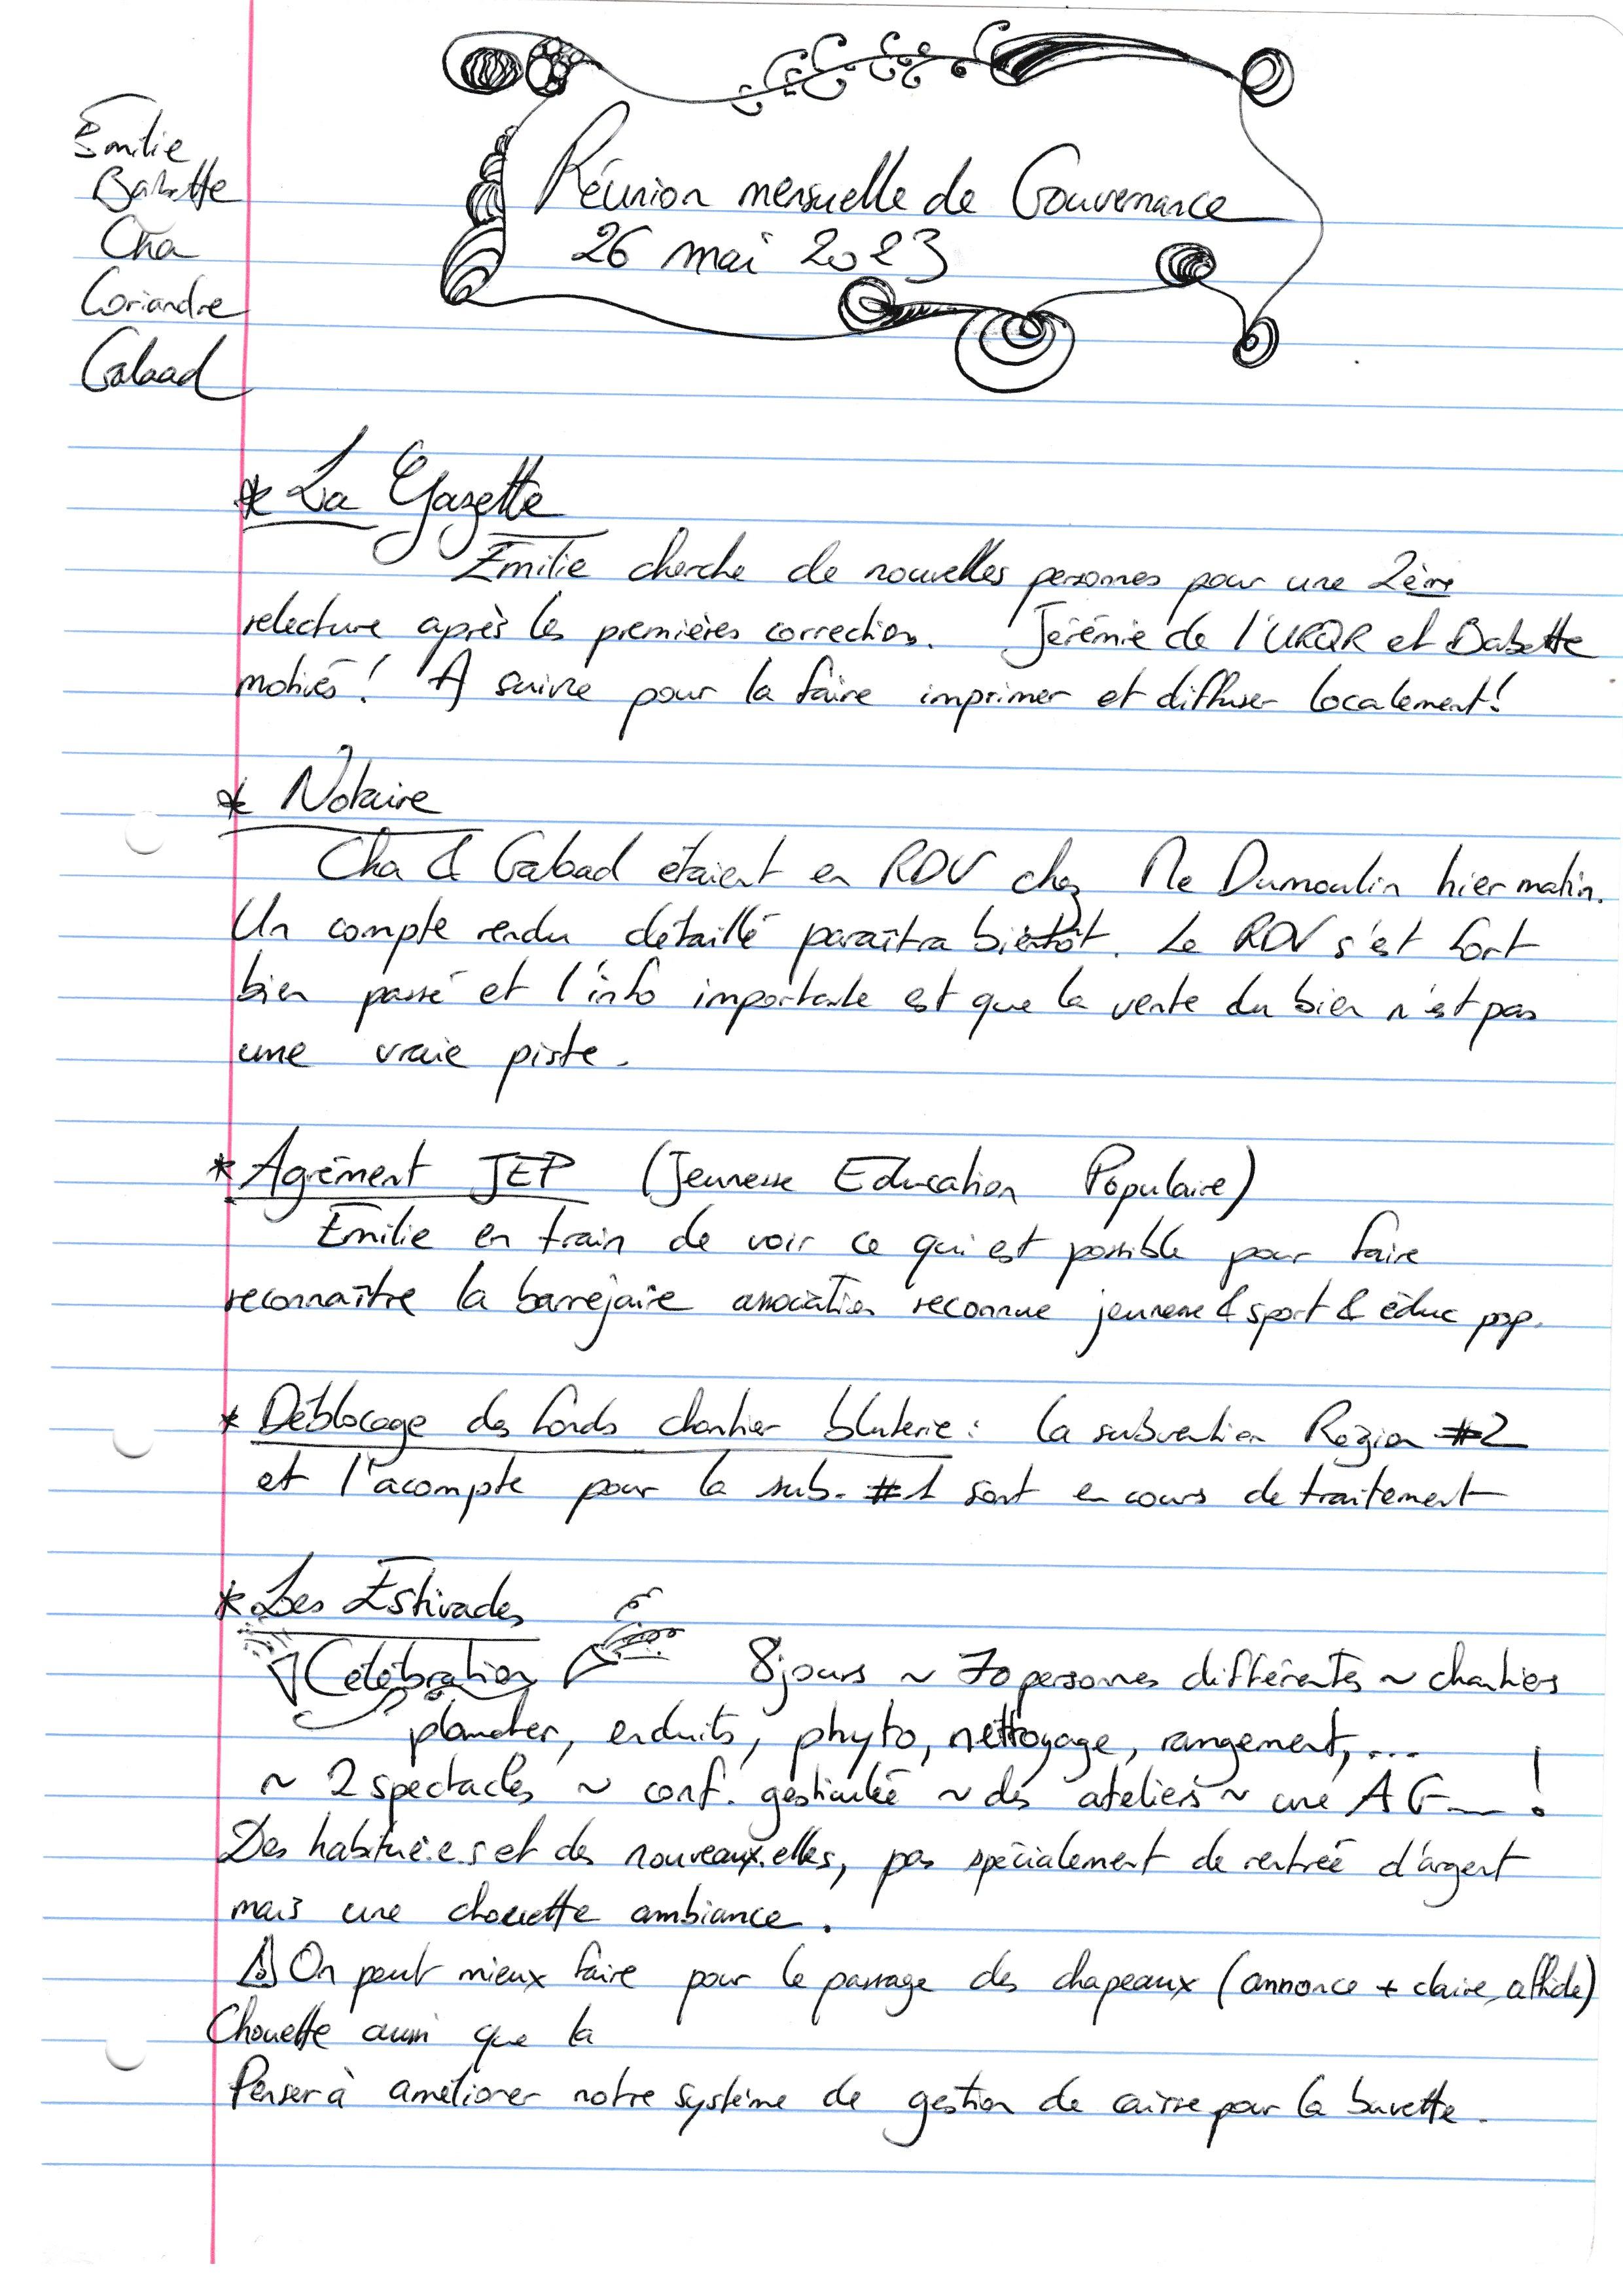 Emilie
Babette
Cha
Coriandre
Galaad
Réunion mensuelle de Gouvernance
26 mai 2023
* La Gazette
Emilie cherche de nouvelles personnes pour une 2ème
relecture après les premières correction. Jérémie de l'URQR et Babette
motivés ! A suivre pour la faire imprimer et diffuser localement !
* Notaire
Cha & Galaad étaient en RDV chez Me Dumoulin hier matin.
Un compte rendu détaillé paraîtra bientôt. Le RDV s'est fort
bien passé et l'info importante est que la vente du bien n'est pas
une vraie piste.
* Agrément JEP (Jeunesse Education Populaire)
Emilie en train de voir ce qui est possible pour faire
reconnaître la barrejaire association reconnue jeunesse & sport & éduc pop.
* Déblocage des fonds chantier bluterie : la subvention Région #2
et l'acompte pour la sub. #1 sont en cours de traitement
* Les Estivades
Célébration 8 jours ~ 70 personnes différentes ~ chantiers
plancher, enduits, phyto, nettoyage, rangement, ...
~ 2 spectacles ~ conf. gesticulée ~ des ateliers ~ une AG !
Des habitué.e.s et des nouveaux.elles, pas spécialement de rentrée d'argent
mais une chouette ambiance.
⚠ On peut mieux faire pour le passage des chapeaux (annonce + claire, affiche)
Chouette aussi que la
Penser à améliorer notre système de gestion de caisse pour la buvette.